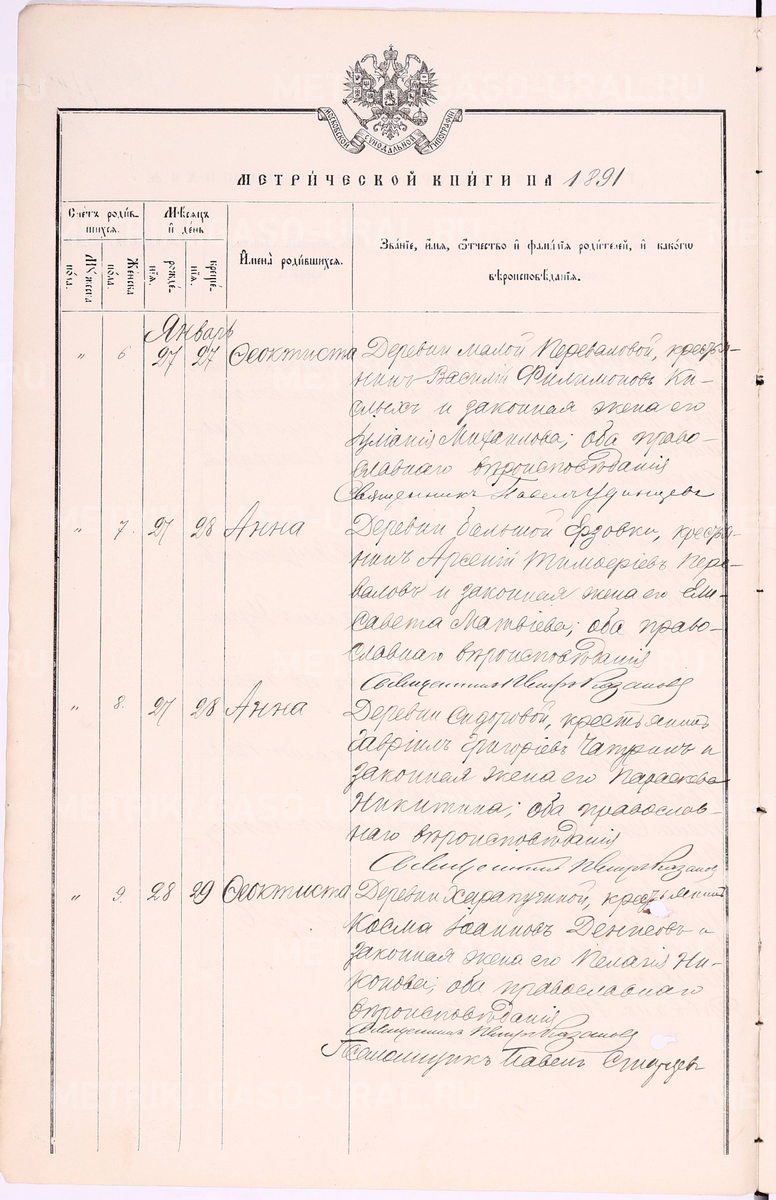 МОСКОВСКОЙ СѴНОДАЛЬНОЙ ТИПОГРАФІИ
МЕТРИ́ЧЕСКОЙ КНИ́ГИ НА 1891
Сче́тъ роди́вшихся.
Мꙋ́жеска по́ла.
Же́нска по́ла.
Мѣ́сяцъ и де́нь
рожде́нїя.
креще́нїя.
И҆мена̀ роди́вшихся.
Зва́нїе, и҆́мѧ, ѻ҆́тчество и҆ фамѝлїѧ роди́телей, и҆ како́гѡ
вѣроисповѣ́данїѧ.
Январь
" 6 27 27 Ѳеоктиста Деревни Малой Переваловой, крестья-
нинъ Василій Филимоновъ Ки-
слыхъ и законная жена его
Іуліанія Михаилова; оба право-
славнаго вѣроисповѣданія
Священникъ Павелъ Удинцевъ
" 7. 27 28 Анна Деревни Большой Ерзовки, крестья-
нинъ Арсеній Тимоѳеевъ Пере-
валовъ и законная жена его Ели-
савета Матвіева; оба право-
славнаго вѣроисповѣданія
Священникъ Петръ Казановъ
" 8. 27 28 Анна Деревни Сидоровой, крестьянинъ
Гавріилъ Григоріевъ и
законная жена его Параскева
Никитина; оба православ-
наго вѣроисповѣданія
Священникъ Петръ Казановъ
" 9. 28 29 Ѳеоктиста Деревни крестьянинъ
Косма Іоанновъ Денисовъ и
законная жена его Пелагія Ни-
конова; оба православнаго
вѣроисповѣданія
Священникъ Петръ Казановъ
Псаломщикъ Павелъ